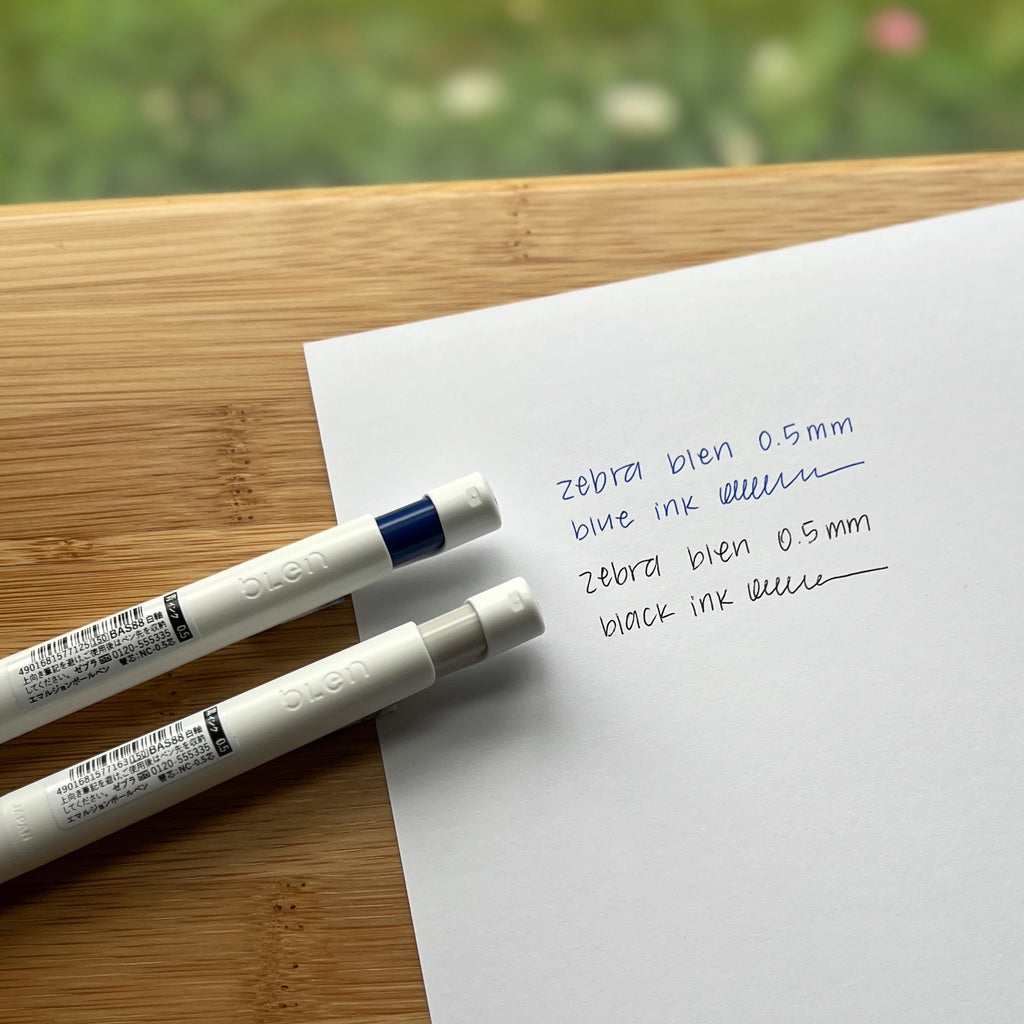 zebra blen 0.5mm
blue ink
zebra blen 0.5mm
black ink
bLen
インク 0.5
4901681577125(150) BAS88 白軸
上向き筆記を避け、ご使用後はペン先を収納
してください。ゼブラ 0120-555335
エマルジョンボールペン 替芯:NC-0.5芯
bLen
黒インク 0.5
4901681577163(150) BAS88 白軸
上向き筆記を避け、ご使用後はペン先を収納
してください。ゼブラ 0120-555335
エマルジョンボールペン 替芯:NC-0.5芯
JAPAN